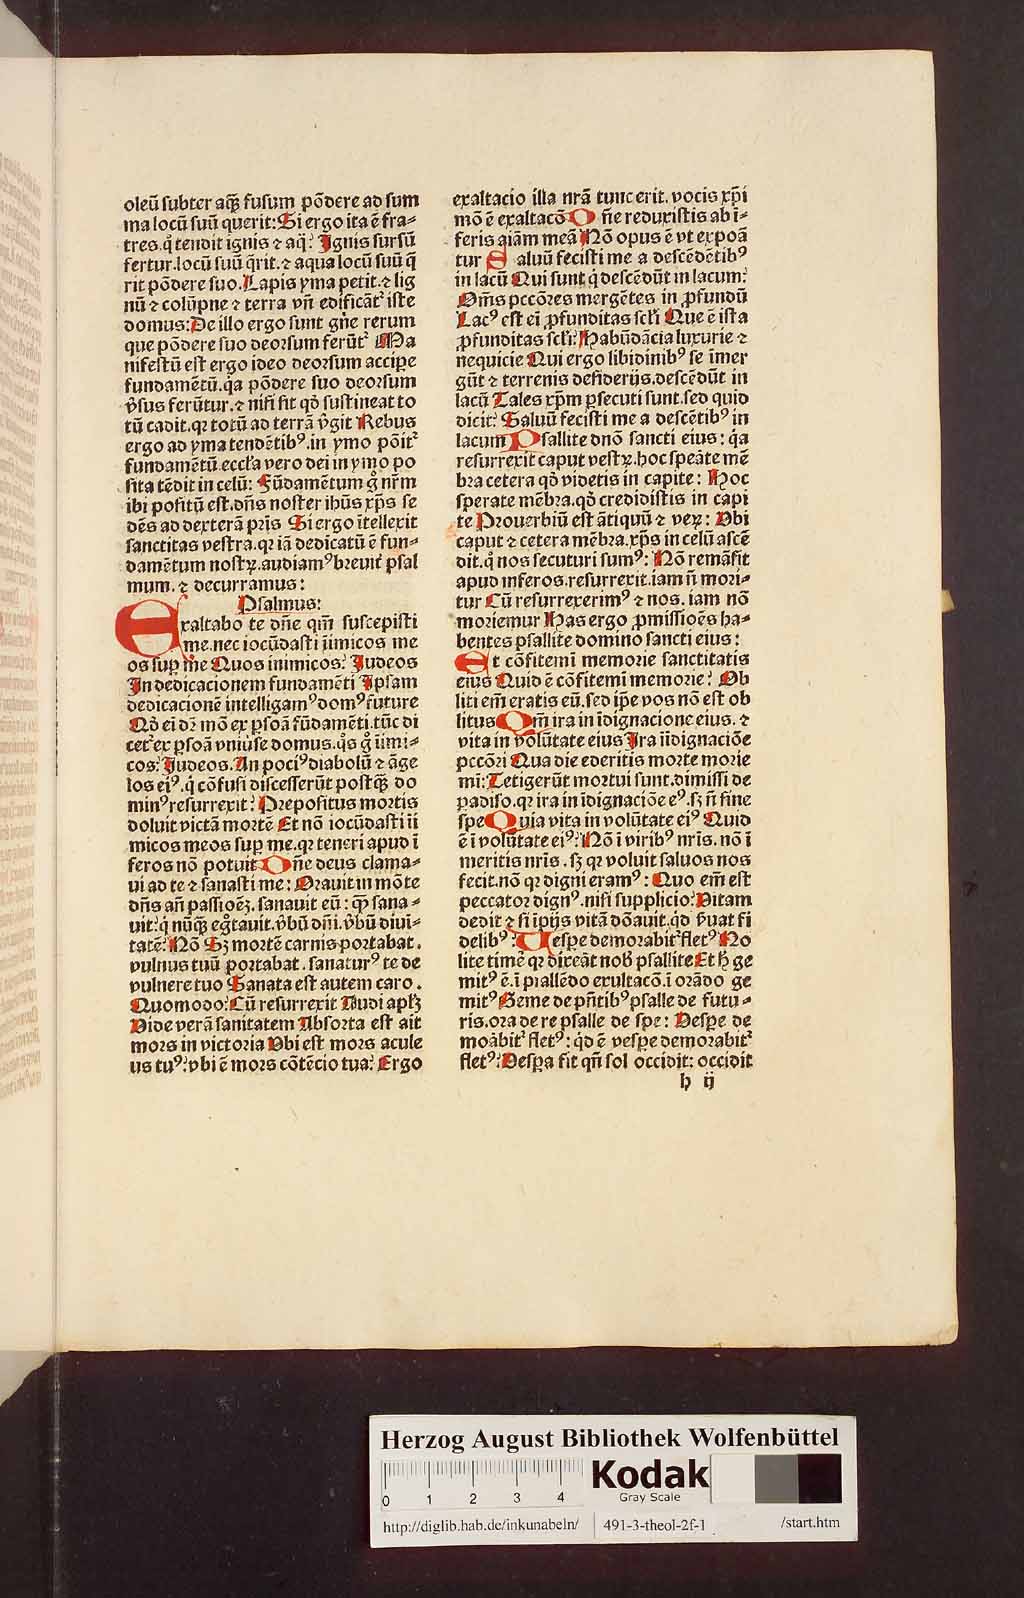 oleū subter aqꝫ fusum põdere ad sum
ma locū suū querit: Si ergo ita ē fra-
tres. q̊ tendit ignis ⁊ aq̄: Ignis sursū
fertur. locū suū q̄rit. ⁊ aqua locū suū q̄
rit põdere suo. Lapis yma petit. ⁊ lig
nū ⁊ colūpne ⁊ terra vñ edificātᷣ iste
domus: De illo ergo sunt gñe rerum
que põdere suo deorsum ferūtᷣ Ma
nifestū est ergo ideo deorsum accipe
fundamētū. q̇a põdere suo deorsum
v̓sus ferūtur. ⁊ nisi sit qď sustineat to
tū cadit. qꝛ totū ad terrā v̓git Rebus
ergo ad yma tendētibꝰ. in ymo põitᷣ
fundamētū. eccľa vero dei in ymo po
sita tēdit in celū: Fūdamētum g̊ nr̄m
ibi positū est. dñs noster ihūs xp̄s se
dēs ad dexterā pris Si ergo ītellexit
sanctitas vestra. qꝛ iā dedicatū ē fun-
damētum nostꝝ. audiamꝰ breuiť psal
mum. ⁊ decurramus:
Psalmus:
Exaltabo te dñe qm̄ suscepisti
me. nec iocūdasti īimicos me
os suꝑ me Quos inimicos: Judeos
In dedicacionem fundamēti Ipsam
dedicacionē intelligamꝰ domꝰ future
Qď ei dꝛ mõ ex ꝑsoā fūdamēti. tūc di
cetᷣ ex ꝑsoā vniúse domus. q̊s g̊ īimi-
cos: Judeos. An pociꝰ diabolū ⁊ āge
los eiꝰ. q̇ cõfusi discesserūt postqꝫ do
minꝰ resurrexit: Prepositus mortis
doluit victā mortē Et nõ iocūdasti īi
micos meos suꝑ me. qꝛ teneri apud ī
feros nõ potuit Dñe deus clama-
ui ad te ⁊ sanasti me: Orauit in mõte
dñs añ passioēꝫ. sanauit eū: qꝫ sana-
uit: q̇ nūqꝫ eg̊tauit. v̓bū dñi. v̓bū diui-
tatē: Nõ Sꝫ mortē carnis portabat.
vulnus tuū portabat. sanaturꝰ te de
vulnere tuo Sanata est autem caro.
Quomodo: Cū resurrexit Audi apľꝫ
Vide verā sanitatem Absorta est ait
mors in victoria Vbi est mors acule
us tuꝰ: vbi ē mors cõtēcio tua: Ergo
exaltacio illa nr̄a tunc erit. vocis xp̄i
mõ ē exaltacõ Dñe reduxisti ab ī-
feris aiām meā Nõ opus ē vt expoā
tur Saluū fecisti me a descēdētibꝰ
in lacū Qui sunt q̇ descēdūt in lacum:
Oms pccõres mergētes in ꝓfundū
Lacꝰ est ei ꝓfunditas scľi Que ē ista
ꝓfunditas scľi: Habūdācia luxurie ⁊
nequicie Qui ergo libidinibꝰ se īmer
gūt ⁊ terrenis desiderijs. descēdūt in
lacū Tales xp̄m ꝑsecuti sunt. sed quid
dicit: Saluū fecisti me a descētibꝰ in
lacum Psallite dnõ sancti eius: q̇a
resurrexit caput vestꝝ. hoc speāte mē
bra cetera qď videtis in capite: Hoc
sperate mēbra. qď credidistis in capi
te Prouerbiū est ātiquū ⁊ veꝝ: Vbi
caput ⁊ cetera mēbra. xp̄s in celū ascē
dit. q̊ nos secuturi sumꝰ: Nõ remāsit
apud inferos. resurrexit. iam ñ mori-
tur Cū resurrexerimꝰ ⁊ nos. iam nõ
moriemur Has ergo ꝓmissioēs ha-
bentes psallite domino sancti eius:
Et cõfitemi memorie sanctitatis
eius Quid ē cõfitemi memorie: Ob
liti em̄ eratis eū. sed ip̄e vos nõ est ob
litus Qm̄ ira in īdignacione eius. ⁊
vita in volūtate eius Ira ī īdignaciõe
pccõri Qua die ederitis morte morie
mi: Tetigerūt mortui sunt. dimissi de
padiso. qꝛ ira in īdignaciõe eꝰ. sꝫ ñ sine
spe Quia vita in volūtate eiꝰ Quid
ē ī volūtate eiꝰ: Nõ ī viribꝰ nr̄is. nõ ī
meritis nr̄is. sꝫ qꝛ voluit saluos nos
fecit. nõ qꝛ digni eramꝰ: Quo em̄ est
peccator dignꝰ. nisi supplicio: Vitam
dedit ⁊ si ipijs vitā dõauit. q̇d ẜuat fi
delibꝰ: Vespe demorabitᷣ fletꝰ No
lite timē qꝛ dixeāt nob̓ psallite Et h̓ ge
mitꝰ ē. ī psallēdo exultacõ. ī orādo ge
mitꝰ Geme de pñtibꝰ psalle de futu-
ris. ora de re psalle de spe: Vespe de
moābitᷣ fletꝰ: q̇d ē vespe demorabitᷣ
fletꝰ: Vespa fit qñ sol occidit: occidit
h ij
Herzog August Bibliothek Wolfenbüttel
0 1 2 3 4
Kodak
Gray Scale
http://diglib.hab.de/inkunabeln/ 491-3-theol-2f-1 /start.htm